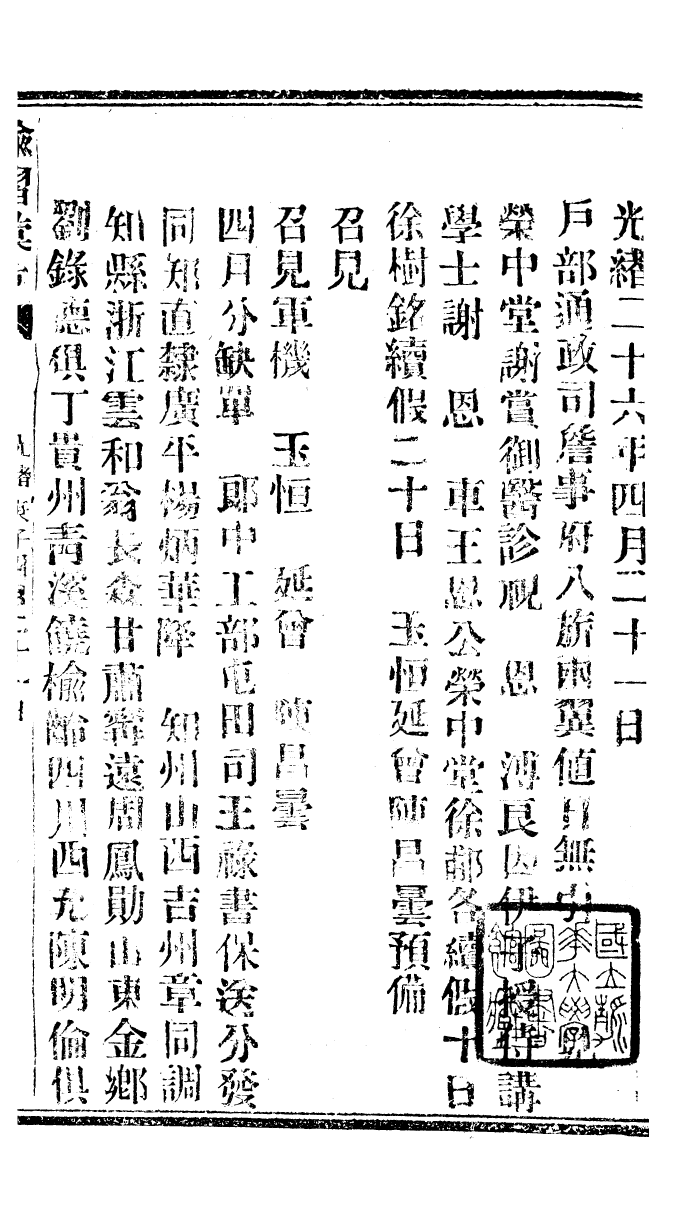 光緒二十六年四月二十一日
戶部通政司詹事府八旂兩翼値日無引
榮中堂謝賞御醫診視　恩　溥良因伊子授侍講
學士謝　恩　車王恩公榮中堂徐郙各續假十日
徐樹銘續假二十日　玉恒延曾陳昌曇預備
召見
召見軍機　玉恒　延曾　陳昌曇
四月分缺單　郎中工部屯田司王祿書保送分發
同知直隸廣平楊炳華降　知州山西吉州章同調
知縣浙江雲和翁長森甘肅寗遠周鳳勛山東金鄉
劉錄德俱丁貴州青溪饒榆齡四川西充陳明倫俱
諭摺彙存
光緒庚子四月二十一日
國立
華大學
圖書